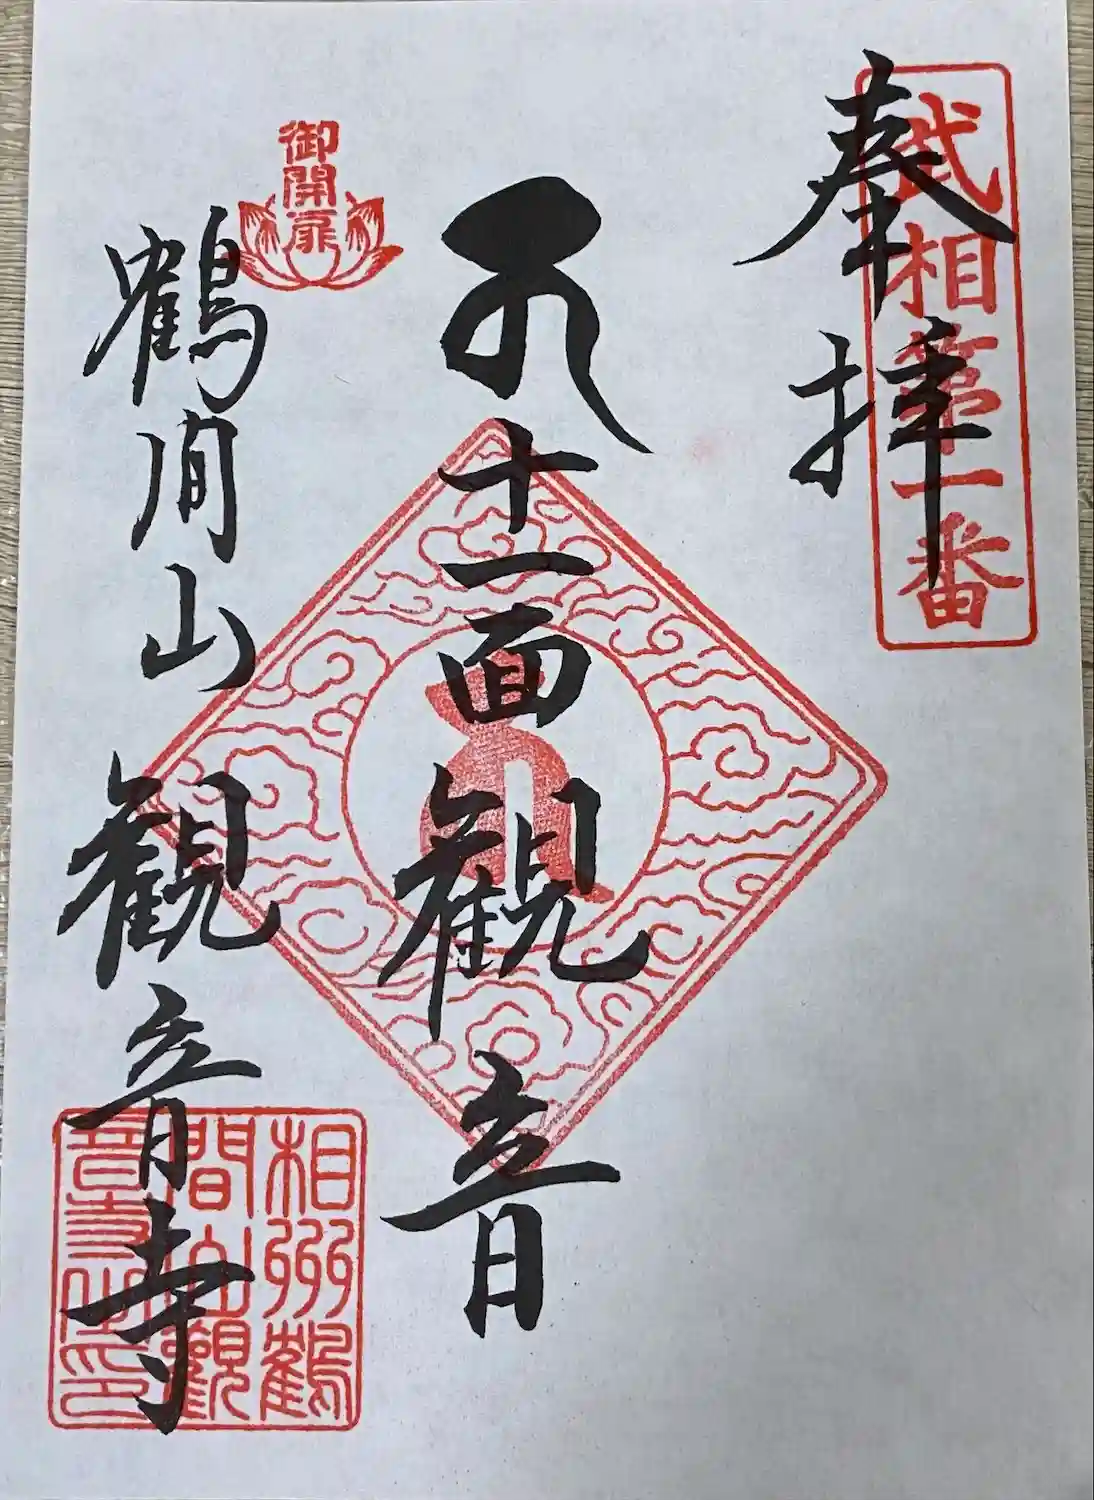 奉拝
武相第一番
十一面観音
御開扉
鶴間山 観音寺
相州鶴
間山観
音寺之印